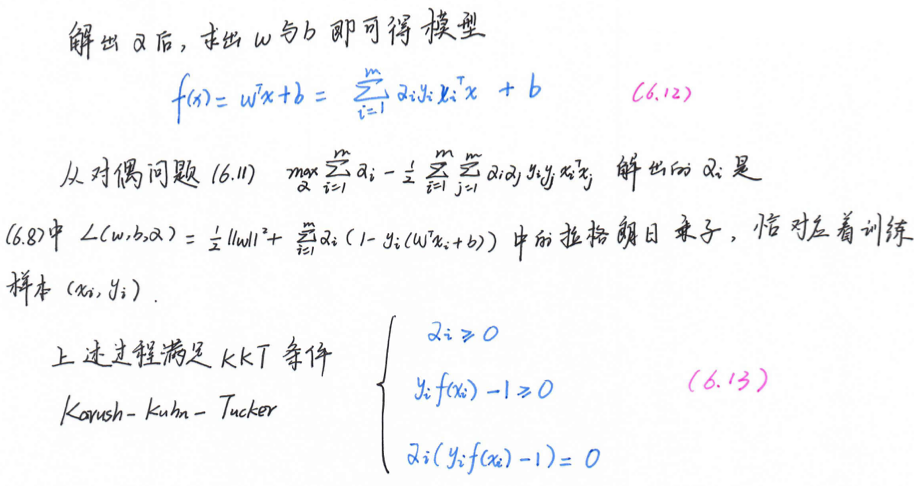 解出α后，求出 w 与 b 即可得模型
f(x) = wᵀx + b = \sum_{i=1}^{m} α_i y_i x_i^T x + b (6.12)
从对偶问题 (6.11) \max_α \sum_{i=1}^{m} α_i - \frac{1}{2} \sum_{i=1}^{m} \sum_{j=1}^{m} α_i α_j y_i y_j x_i^T x_j 解出的 α_i 是
(6.8)中 L(w,b,α) = \frac{1}{2}||w||² + \sum_{i=1}^{m} α_i (1 - y_i(wᵀx_i + b)) 中的拉格朗日乘子，恰对应着训练
样本 (x_i, y_i).
上述过程满足 KKT 条件
Karush-Kuhn-Tucker
α_i ≥ 0
y_i f(x_i) - 1 ≥ 0 (6.13)
α_i (y_i f(x_i) - 1) = 0